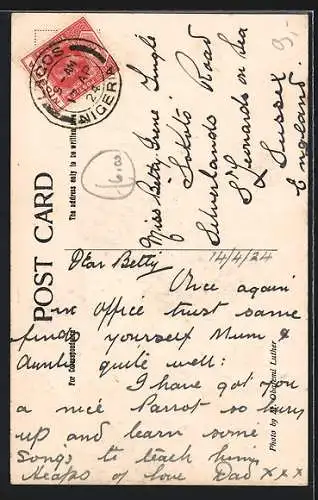 LAGOS
NIGERIA
9,-
6,00
POST CARD
The address only to be written here
For Correspondence
Miss Betty Irene Ingle
Sokoto
Silverlands Road
St Leonards on Sea
Sussex
England
14/4/24
Dear Betty
Once again
in office trust same
finds yourself Mum &
Auntie quite well:
I have got you
a nice Parrot so hurry
up and learn some
songs to teach him
Heaps of love Dad xxx
Photo by Luther